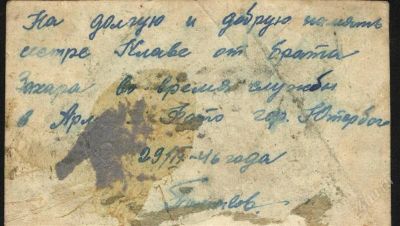 На долгую и добрую память
сестре Клаве от брата
Захара во время службы
в Арм Фото гор. Ютербог
29/IV-46 года